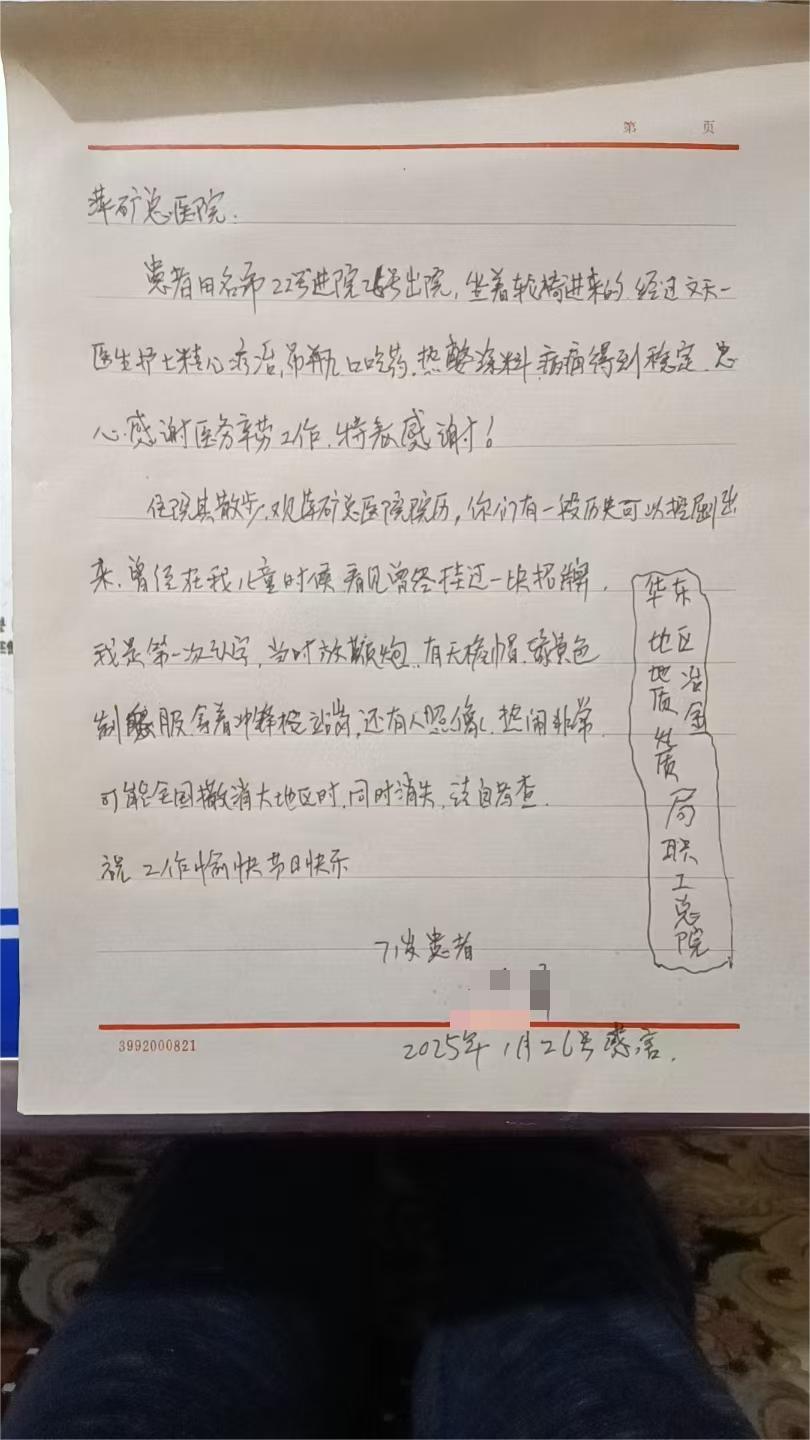 第 页
萍矿总医院.
患者田名希22号进院26号出院，坐着轮椅进来的 经过文天一
医生护士精心疗治，吊瓶 口吃药. 热 涂料 病痛得到稳定. 忠
心感谢医务辛劳工作. 特 感谢！
住院其散步. 观萍矿总医院院历，你们有一段历史可以挖掘出
来. 曾经在我儿童时候 看见曾经挂过一块招牌.
我是第一次 字，当时放 炮. 有 帽. 绿黄色
制 服 拿着冲锋枪站岗，还有人照像. 热闹非常.
可能全国撤消大地区时. 同时消失. 请自考查.
祝 工作愉快 节日快乐
华东
地区
冶金
地质
质
局
职
工
总
院
71岁患者
3992000821
2025年1月26号感言.